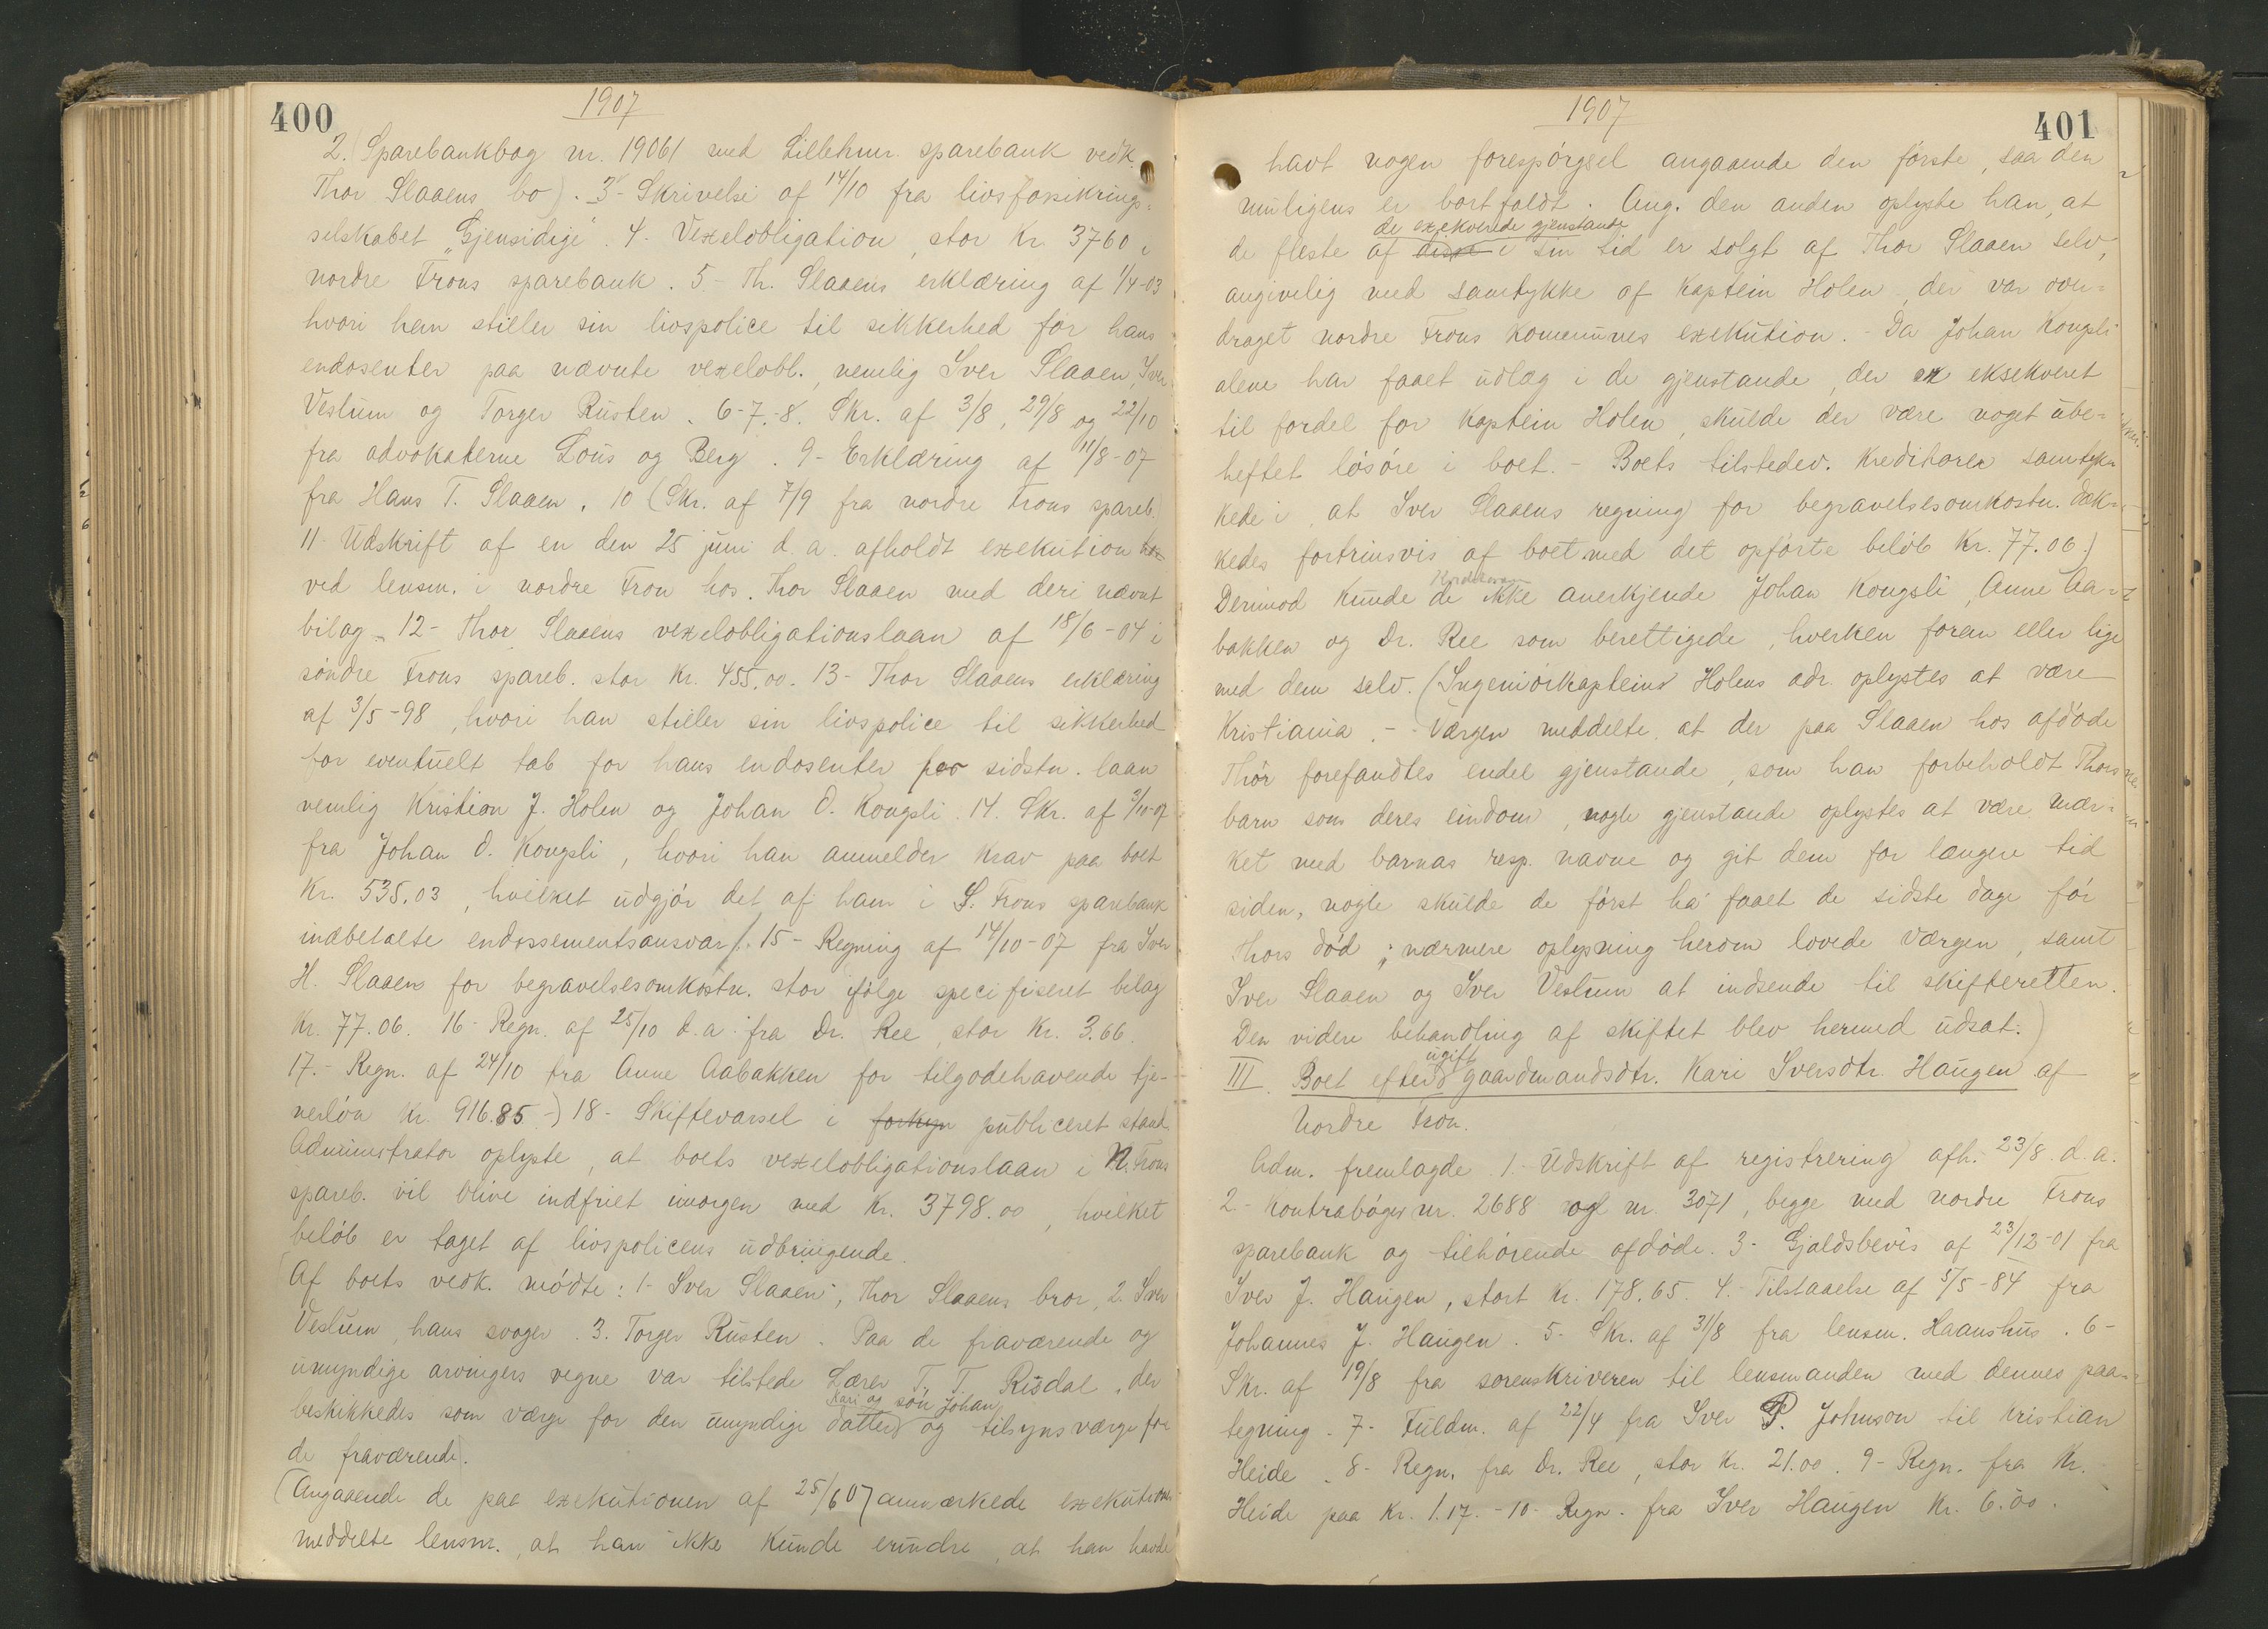 400
1907
2. (Sparebankbog nr. 19061 med Lillehmr. sparebank vedk.
Thor Slaaens bo). 3- Skrivelse af 14/10 fra livsforsikrings-
selskabet „Gjensidige". 4. Vexelobligation, stor Kr. 3760 i
nordre Frons sparebank. 5.- Th. Slaaens erklæring af 1/4-03
hvori han stiller sin livspolice til sikkerhed for hans
endosenter paa nævnte vexelobl., nemlig Iver Slaaen, Iver
Veslum og Torger Rusten. 6-7.-8. Skr. af 3/8, 29/8 og 22/10
fra advokaterne Lous og Berg. 9- Erklæring af 11/8-07
fra Hans T. Slaaen. 10 (Skr. af 7/9 fra nordre Frons spareb.
11- Udskrift af en den 25 juni d.a. afholdt exekution
ved lensm. i nordre Fron hos. Thor Slaaen med deri nævnt
bilag. 12- Thor Slaaens vexelobligationslaan af 18/6-04 i
søndre Frons spareb. stor Kr. 455.00. 13- Thor Slaaens erklæring
af 3/5-98, hvori han stiller sin livspolice til sikkerhed
for eventuelt tab for hans endosenter paa sidstn. laan
nemlig Kristian J. Holen og Johan O. Kongsli. 14. Skr. af 3/10-07
fra Johan O. Kongsli, hvori han anmelder krav paa boet
Kr. 535.03, hvilket udgjør det af ham i S. Frons sparebank
indbetalte endossementsansvar). 15- Regning af 14/10-07 fra Iver
H. Slaaen for begravelsesomkostn. stor ifølge specifiseret bilag
Kr. 77.06. 16- Regn. af 25/10 d.a. fra Dr. Ree, stor Kr. 3.66.
17.- Regn. af 24/10 fra Anne Aabakken for tilgodehavende tje-
nerløn Kr. 916.85.-) 18- Skiftevarsel i forkyn publiceret stand.
Administrator oplyste, at boets vexelobligationslaan i N. Frons
spareb. vil blive indfriet imorgen med Kr. 3798.00, hvilket
beløb er taget af livspolicens udbringende.
(Af boets vedk. mødte: 1- Iver Slaaen, Thor Slaaens bror, 2. Iver
Veslum, hans svoger. 3. Torger Rusten. Paa de fraværende og
umyndige arvingers vegne var tilstede Lærer T. T. Risdal, der
Kari og søn Johan
beskikkedes som værge for den umyndige datter og tilsynsværge for
de fraværende.
(Angaaende de paa exekutionen af 25/6 07 anmærkede exekutioner
meddelte lensm., at han ikke kunde erindre, at han havde
401
1907
havt nogen forespørgsel angaaende den første, saa den
muligens er bortfaldt. Ang. den anden oplyste han, at
de exekverede gjenstande
de fleste af disse i sin tid er solgt af Thor Slaaen selv,
angivelig med samtykke af Kaptein Holen, der var over-
draget nordre Frons kommunes exekution. - Da Johan Kongsli
alene har faaet udlæg i de gjenstande, der er eksekveret
til fordel for Kaptein Holen, skulde der være noget ube-
heftet løsøre i boet. - Boets tilstedev. Kreditorer samtyk-
kede i, at Iver Slaaens regning for begravelsesomkostn. dæk-
kedes fortrinsvis af boet med det opførte beløb Kr. 77.06.)
Kreditorerne
Derimod kunde de ikke anerkjende Johan Kongsli, Anne Aa-
bakken og Dr. Ree som berettigede, hverken foran eller lige
med dem selv. (Ingeniørkaptein Holens adr. oplystes at være
Kristiania. - Værgen meddelte, at der paa Slaaen hos afdøde
Thor forefandtes endel gjenstande, som han forbeholdt Thors
barn som deres eindom, nogle gjenstande oplystes at være mær-
ket med barnas resp. navne og git dem for længere tid
siden, nogle skulde de først ha faaet de sidste dage før
Thors død; nærmere oplysning herom lovede Værgen, samt
Iver Slaaen og Iver Veslum at indsende til skifteretten.
Den videre behandling af skiftet blev hermed udsat.)
ugift
III. Boet efter gaardmandsdtr. Kari Iversdtr. Haugen af
Nordre Fron.
Adm. fremlagde 1.- Udskrift af registrering afh. 23/8 d.a.
2- Kontrabøger nr. 2688 og nr. 3071, begge med nordre Frons
sparebank og tilhørende afdøde. 3- Gjældsbevis af 23/12-01 fra
Iver J. Haugen, stort Kr. 178.65. 4.- Tilstaaelse af 5/5-84 fra
Johannes J. Haugen. 5- Skr. af 31/8 fra lensm. Haanshus. 6-
Skr. af 19/8 fra sorenskriveren til lensmanden med dennes paa-
tegning. 7- Fuldm. af 22/4 fra Iver P. Johnson til Kristian
Heide. 8- Regn. fra Dr. Ree, stor Kr. 21.00. 9- Regn. fra Kr.
Heide paa Kr. 1.17. -10- Regn. fra Iver Haugen Kr. 6.00.